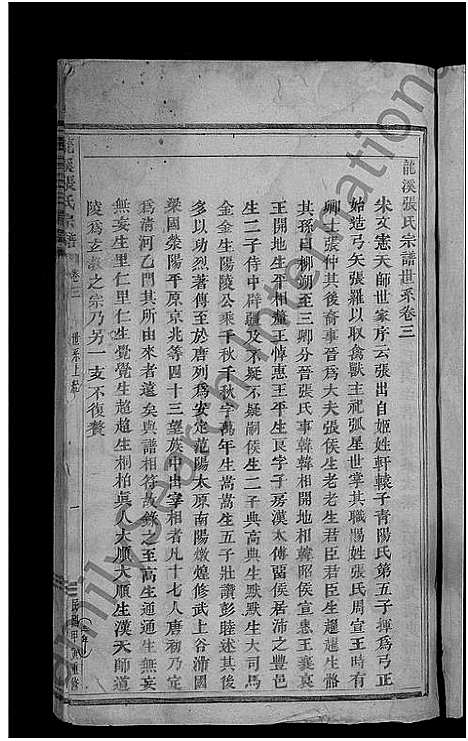 龍溪張氏宗譜世系卷三
宋文憲天師世家序云張出自姬姓軒轅子青陽氏第五子揮爲弓正
始造弓矢張羅以取禽獸主祀弧星世掌其職賜姓張氏周宣王時有
卿士張仲其後裔事晉爲大夫張侯生老老生君臣君臣生趯趯生骼
其孫曰柳朔至三卿分晉張氏事韓韓相開地相韓昭侯宣惠王襄哀
王開地生平相釐王悼惠王平生良字子房漢太傅留侯居沛之豐邑
生二子侍中辟疆及不疑不疑嗣侯生二子典高典生默默生大司馬
金金生陽陵公乘千秋千秋字萬年生嵩嵩生五子壯讚彭睦述其後
多以功烈著傳至於唐列爲安定范陽太原南陽燉煌修武上谷沛國
梁國滎陽平原京兆等四十三望族中由宰相者凡十七人唐初乃定
爲清河乙門其所由來者遠矣與譜相符故錄之至高生通通生無妄
無妄生里仁里仁生覺覺生趙趙生桐柏眞人大順大順生漢天師道
陵爲玄教之宗乃另一支不復贅
龍溪張氏宗譜
卷三
世系上紀
一